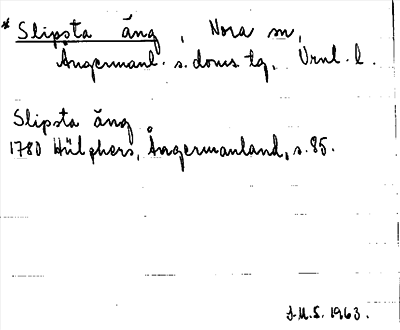 * Slipsta äng, Nora sn,
Ångermanl. s. doms tg. Vrnl. l.
Slipsta äng
1780 Hülphers, Ångermanland, s. 85.
J.M.S. 1963.